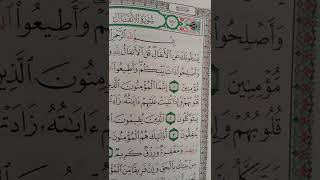 سُورَةُ الأَنفَالِ
بِسْمِ اللَّهِ الرَّحْمَ
يَسْـَٔلُونَكَ عَنِ الْأَنفَالِ قُلِ الْأَنفَالُ لِلَّهِ
وَأَصْلِحُوا ذَاتَ بَيْنِكُمْ وَأَطِيعُوا ا
مُّؤْمِنِينَ ١ إِنَّمَا الْمُؤْمِنُونَ الَّذِينَ
قُلُوبُهُمْ وَإِذَا تُلِيَتْ عَلَيْهِمْ ءَايَـٰتُهُ زَادَتْ
يَتَوَكَّلُونَ ٢ الَّذِينَ يُقِيمُونَ
يُنفِقُونَ ٣ أُولَـٰئِكَ هُمُ الْمُؤْمِنُونَ
وَمَغْفِرَةٌ وَرِزْقٌ كَرِيمٌ
مِن بَيْتِكَ بِالْحَقِّ وَإِنَّ فَرِيقًا مِّنَ الْمُؤْ